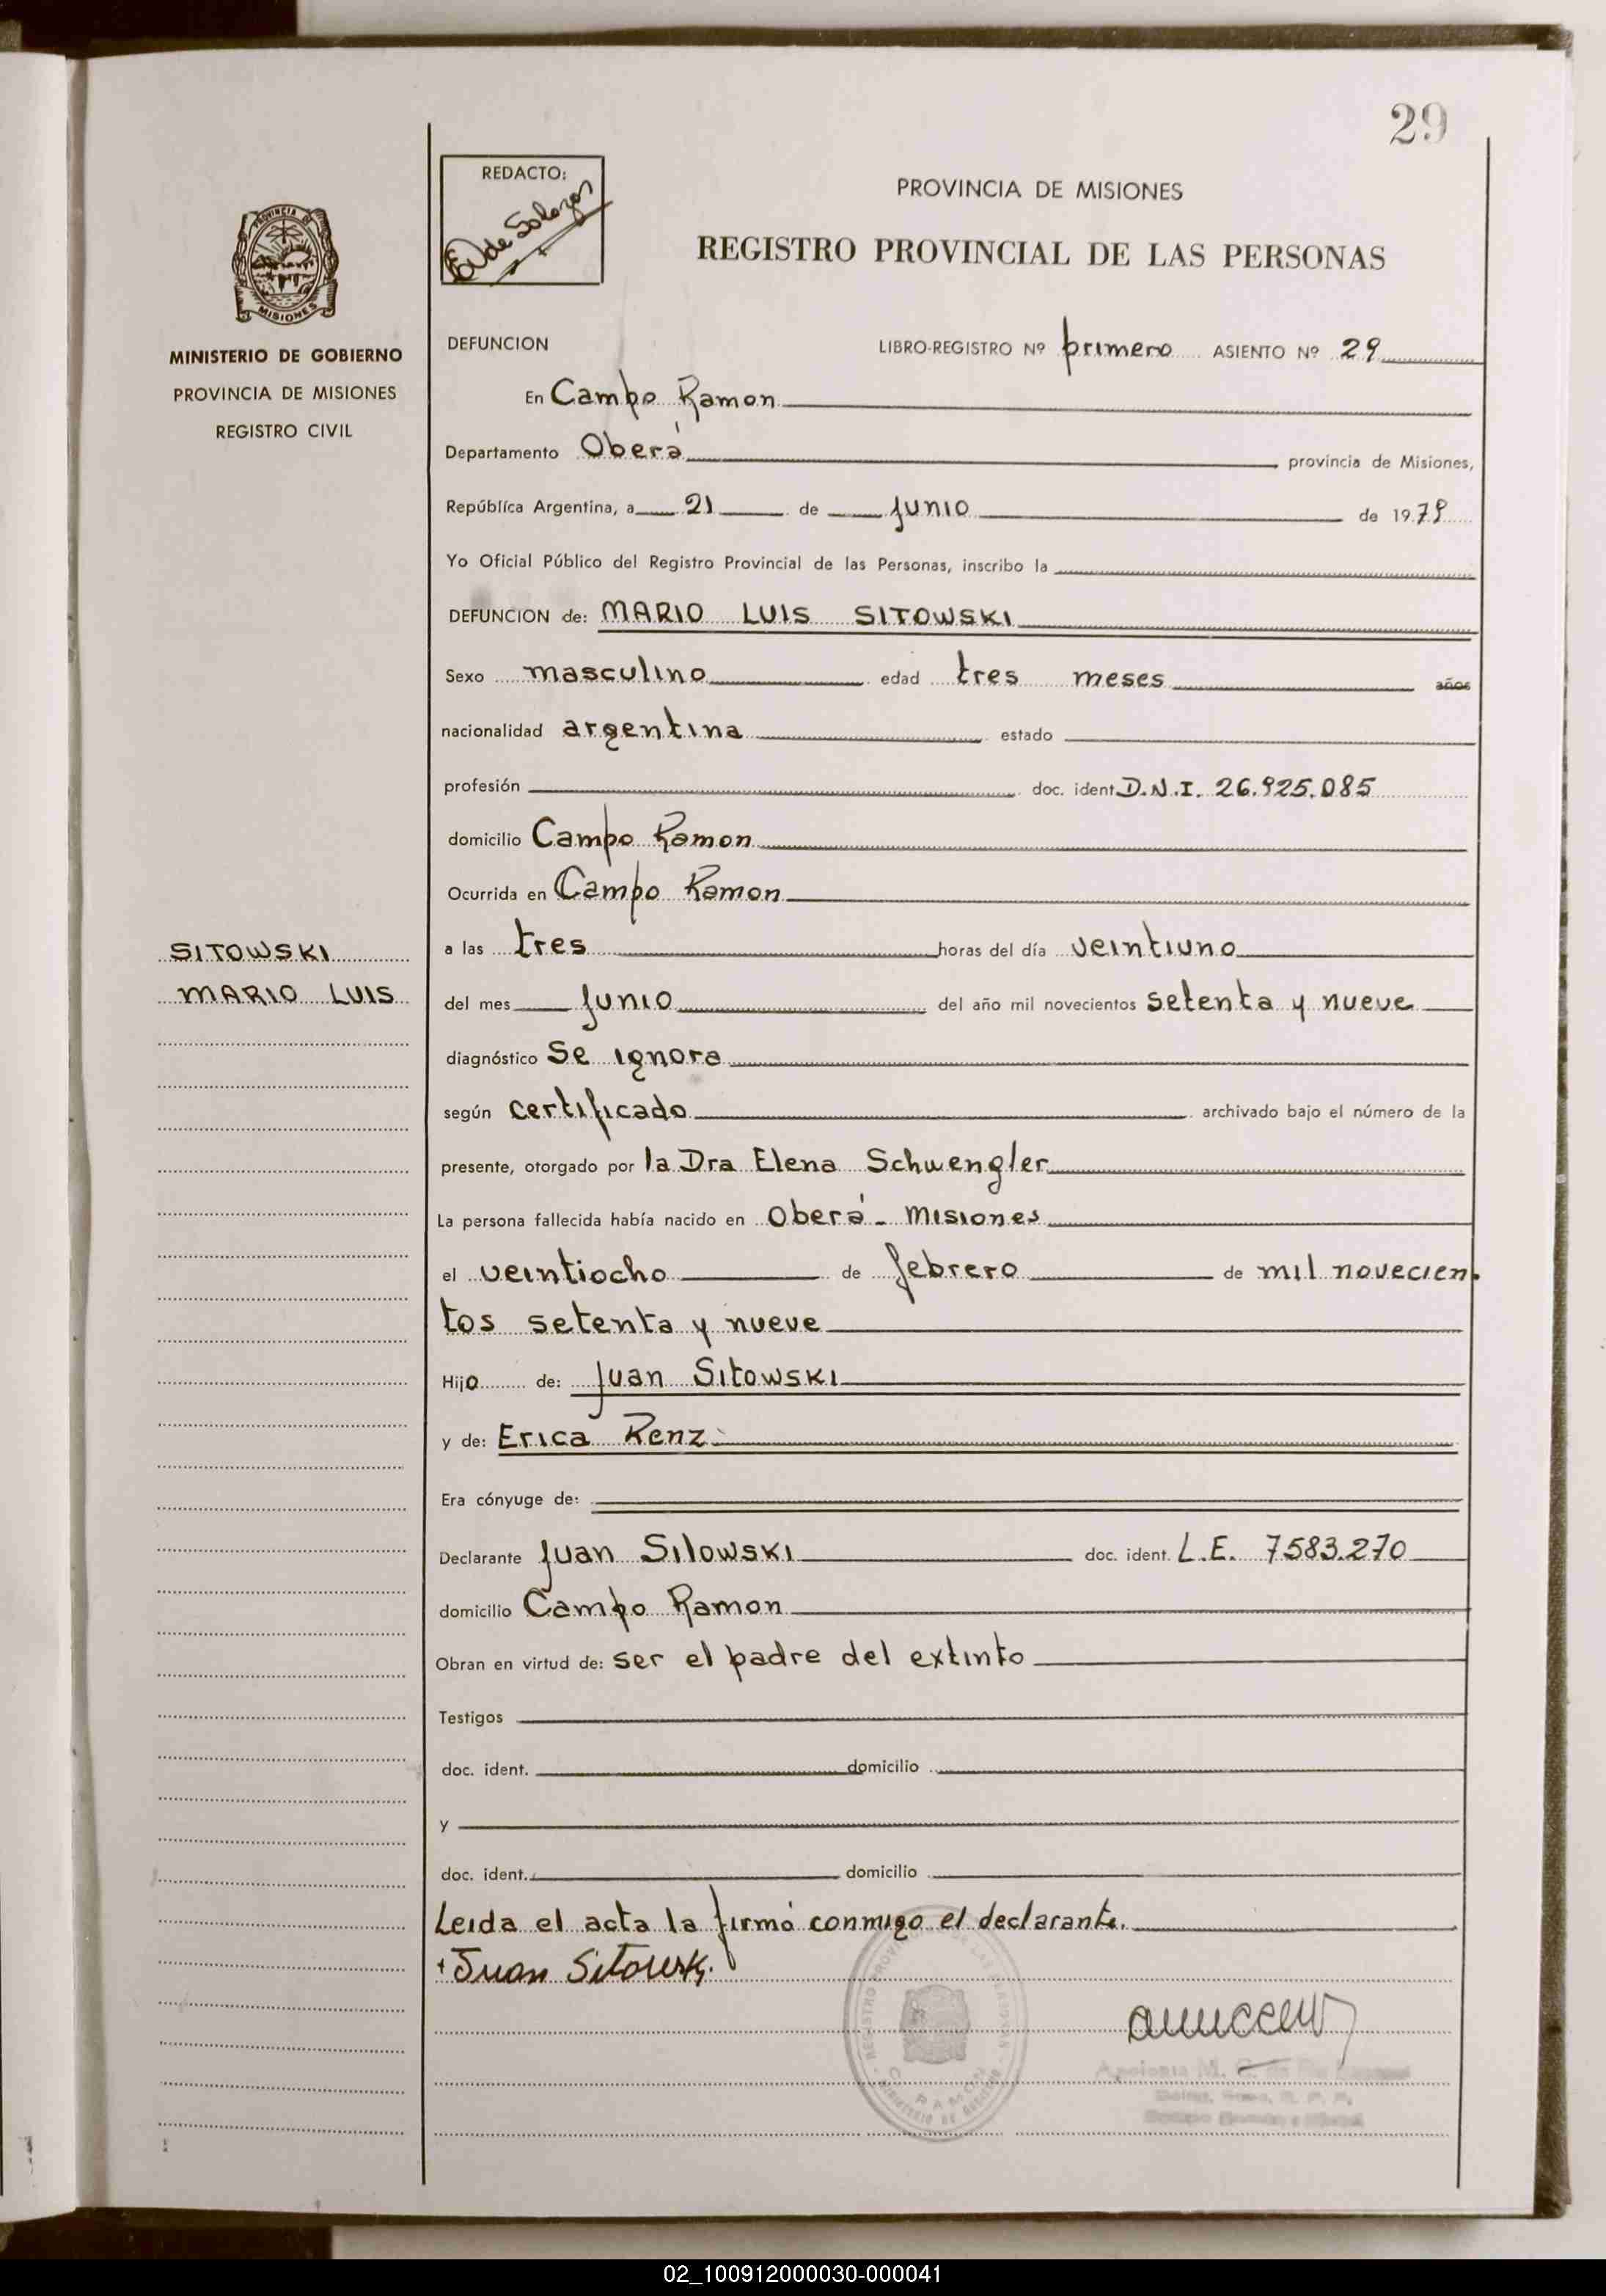 29
REDACTO:
PROVINCIA DE MISIONES
REGISTRO PROVINCIAL DE LAS PERSONAS
PROVINCIA DE
MISIONES
MINISTERIO DE GOBIERNO
PROVINCIA DE MISIONES
REGISTRO CIVIL
DEFUNCION LIBRO-REGISTRO Nº primero ASIENTO Nº 29
En Campo Ramon
Departamento Oberá provincia de Misiones,
República Argentina, a 21 de junio de 1979
Yo Oficial Público del Registro Provincial de las Personas, inscribo la
DEFUNCION de: MARIO LUIS SITOWSKI
Sexo masculino edad tres meses años
nacionalidad argentina estado
profesión doc. ident. D.N.I. 26.925.085
domicilio Campo Ramon
Ocurrida en Campo Ramon
SITOWSKI
MARIO LUIS
a las tres horas del día veintiuno
del mes junio del año mil novecientos setenta y nueve
diagnóstico Se ignora
según certificado archivado bajo el número de la
presente, otorgado por la Dra Elena Schwengler
La persona fallecida había nacido en Oberá - Misiones
el veintiocho de febrero de mil novecien
tos setenta y nueve
Hijo de: Juan Sitowski
y de: Erica Renz
Era cónyuge de:
Declarante Juan Silowski doc. ident. L.E. 7583.270
domicilio Campo Ramon
Obran en virtud de: ser el padre del extinto
Testigos
doc. ident. domicilio
y
doc. ident. domicilio
Leida el acta la firmó conmigo el declarante.
Juan Sitowski
02_100912000030-000041